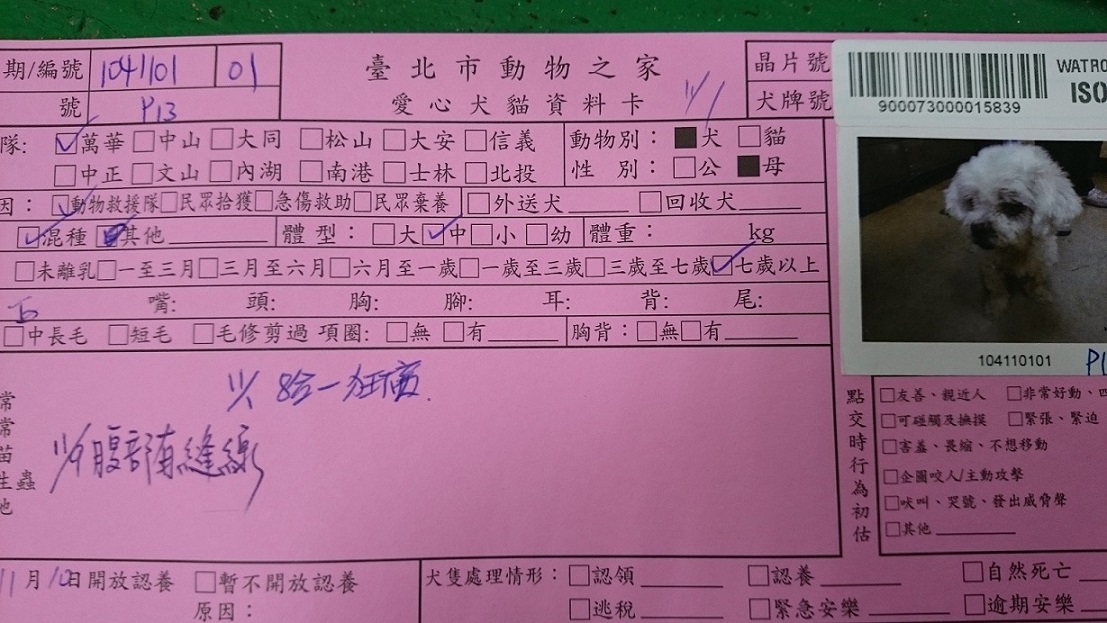 期/編號 1041101 01
臺北市動物之家
晶片號
WATRO
ISO
900073000015839
號 P13
愛心犬貓資料卡 11/1
犬牌號
隊: ☑萬華□中山□大同 □松山□大安□信義
動物別: ■犬 □貓
□中正□文山□內湖 □南港□士林□北投
性 別: □公 ■母
因: ☑動物救援隊□民眾拾獲□急傷救助□民眾棄養 □外送犬 □回收犬
☑混種 其他 體型: □大☑中□小□幼 體重: kg
□未離乳□一至三月□三月至六月□六月至一歲□一歲至三歲□三歲至七歲☑七歲以上
嘴: 頭: 胸: 腳: 耳: 背: 尾:
□中長毛 □短毛 □毛修剪過 項圈: □無 □有 胸背: □無□有
104110101 P1
11/1 8合一狂癘.
11/9腹部有縫線
常
常
苗
生蟲
他
點交時行為初估
□友善、親近人 □非常好動、四
□可碰觸及撫摸 □緊張、緊迫
□害羞、畏縮、不想移動
□企圖咬人/主動攻擊
□吠叫、哭號、發出威脅聲
□其他
11月10日開放認養 □暫不開放認養
原因:
犬隻處理情形: □認領 □認養 □自然死亡
□逃稅 □緊急安樂 □逾期安樂